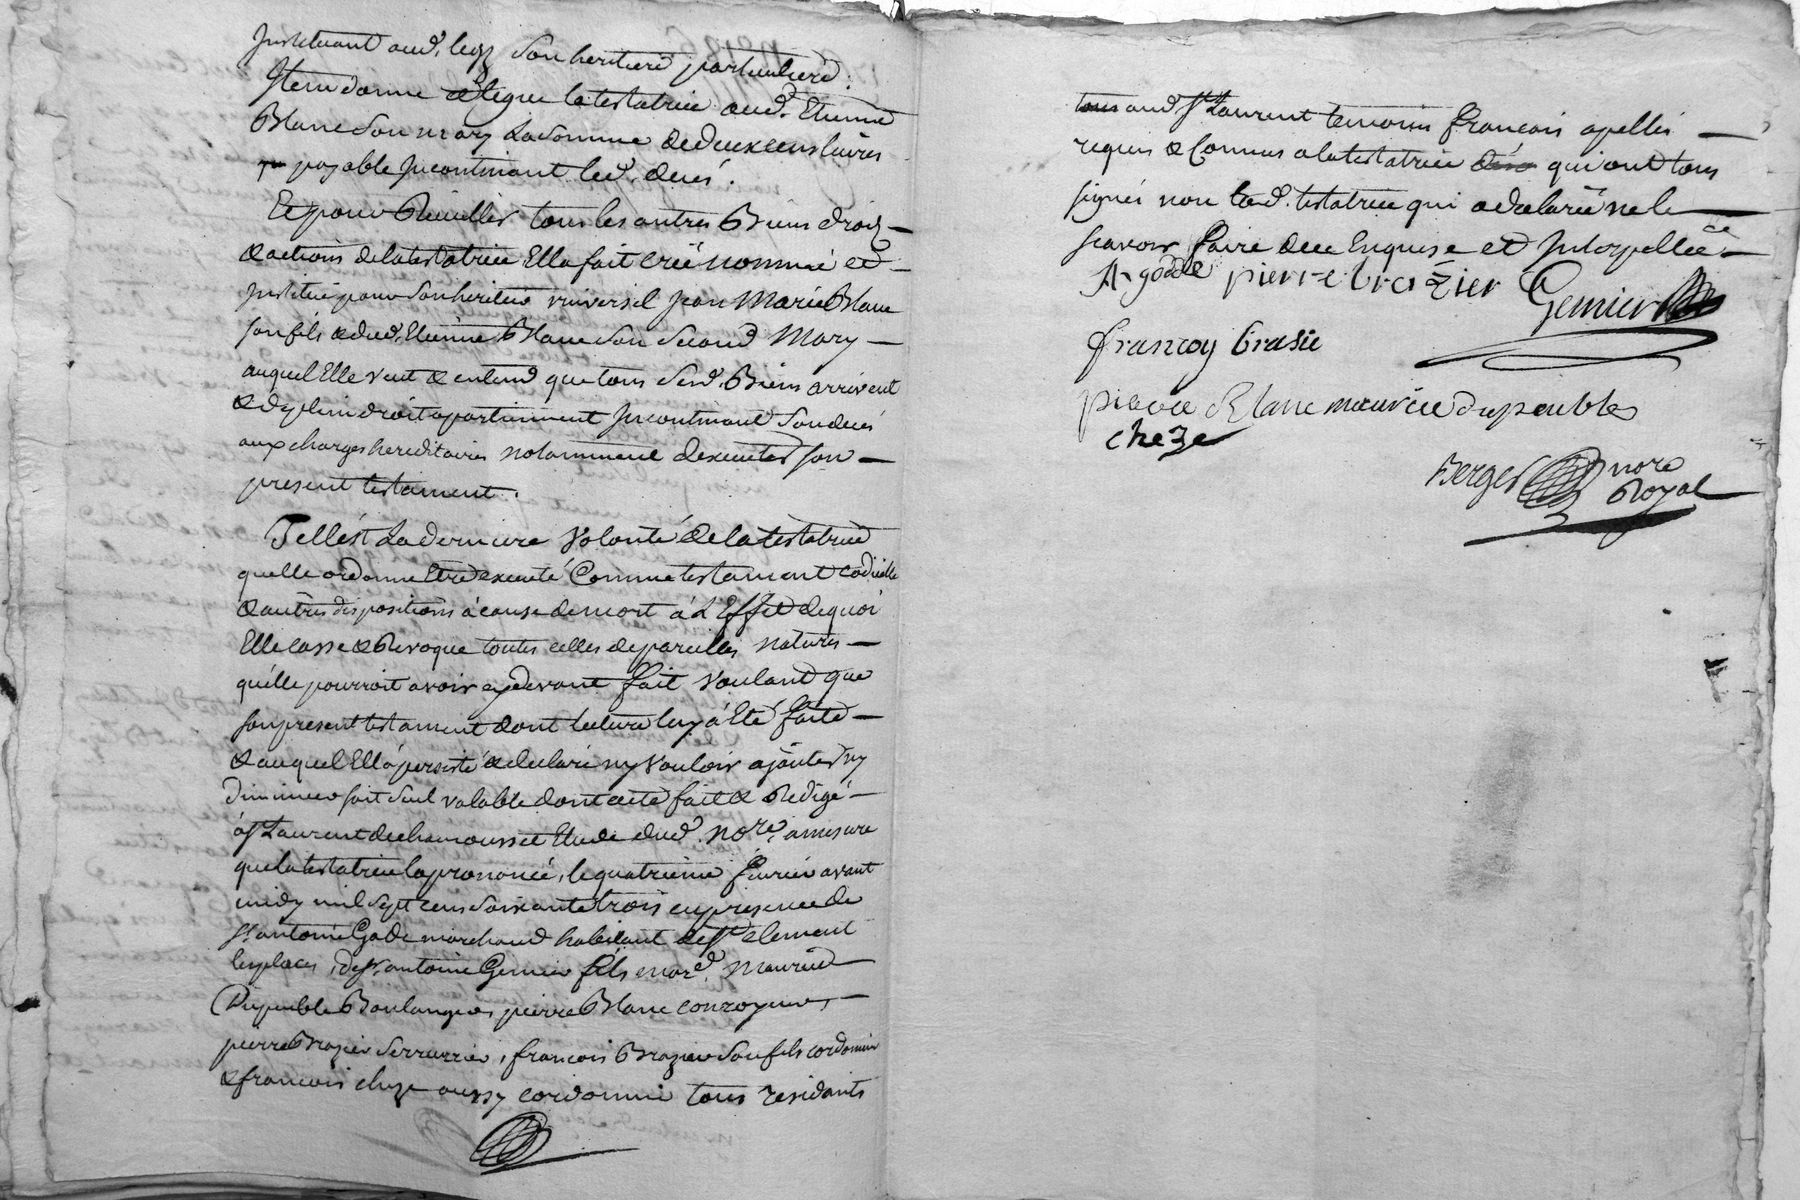 Instituant aud. legs son heritiere particuliere.
Item donne & legue la testatrice aud. Etienne
Blanc son mary La somme de deux cens livres
payable Incontinant led. decés.
Et pour Recuillir tous les autres Biens droits
& actions de la testatrice Ella fait creé nommé et
Institué pour son heritier universel Jean Marie Blanc
son fils & dud. Etienne Blanc son second Mary
auquel Elle veut & entend que tous sesd. Biens arrivent
& de plein droit apartiennent Incontinant son decés
aux charges hereditaires notamment dexecuter son
present testament.
Tellést La derniere Volonté de la testatrice
quelle ordonne Etre executé Comme testament codicille
& autres dispositions à cause de mort á L'Effet de quoi
Elle casse & Revoque toutes celles de pareilles natures
quélle pourroit avoir cy devant fait voulant que
son present testament dont lecture luy á Eté faite
& auquel Ell'á persisté & declaré ny vouloir ajoûter ny
diminuer soit seul valable dont acte fait & Redigé
á St Laurent de chamousset Etude dud. nore. a mesure
que la testatrice la prononcé, le quatrieme fevrier avant
midy mil sept cens soixante trois en presence de
sr. antoine Gode marchand habitant de St clement
les places, de sr. antoine Gemier fils mard. Maurice
Dupeuble Boulanger, pierre Blanc conroyeur,
pierre Brazier serrurrier, francois Brazier son fils cordonnier
& francois cheze aussy cordonnier tous residants
aud St Laurent temoins francois apellés
requis & Connus a la testatrice qui ont tous
signés non lad. testatrice qui a declarée ne le
scavoir faire de ce Enquise et Interpellée
A gode pierre brazier Gemier
francoy brasie
pierre Blanc maurice dupeuble
cheze
Berger nore
Royal